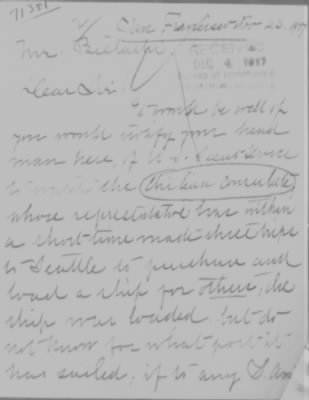 71351
San Francisco Nov 23. 1917
Mr. Bielaski
RECEIVED
DEC 4 1917
Dear Sir:
It would be well if
you would notify your head
man here, of U.S. Secret Service
to watch the Chilean Consulate
whose representative has within
a short time made three trips
to Seattle to purchase and
load a ship for others; the
ship was loaded, but do
not know for what port it
has sailed; if to any S. Am